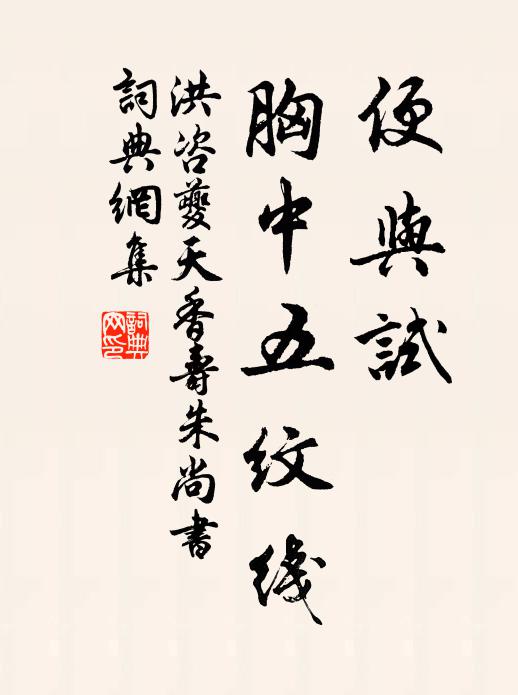 便與試
胸中五紋线
洪咨夔天香壽朱尚書
詞典網集
詞典網印